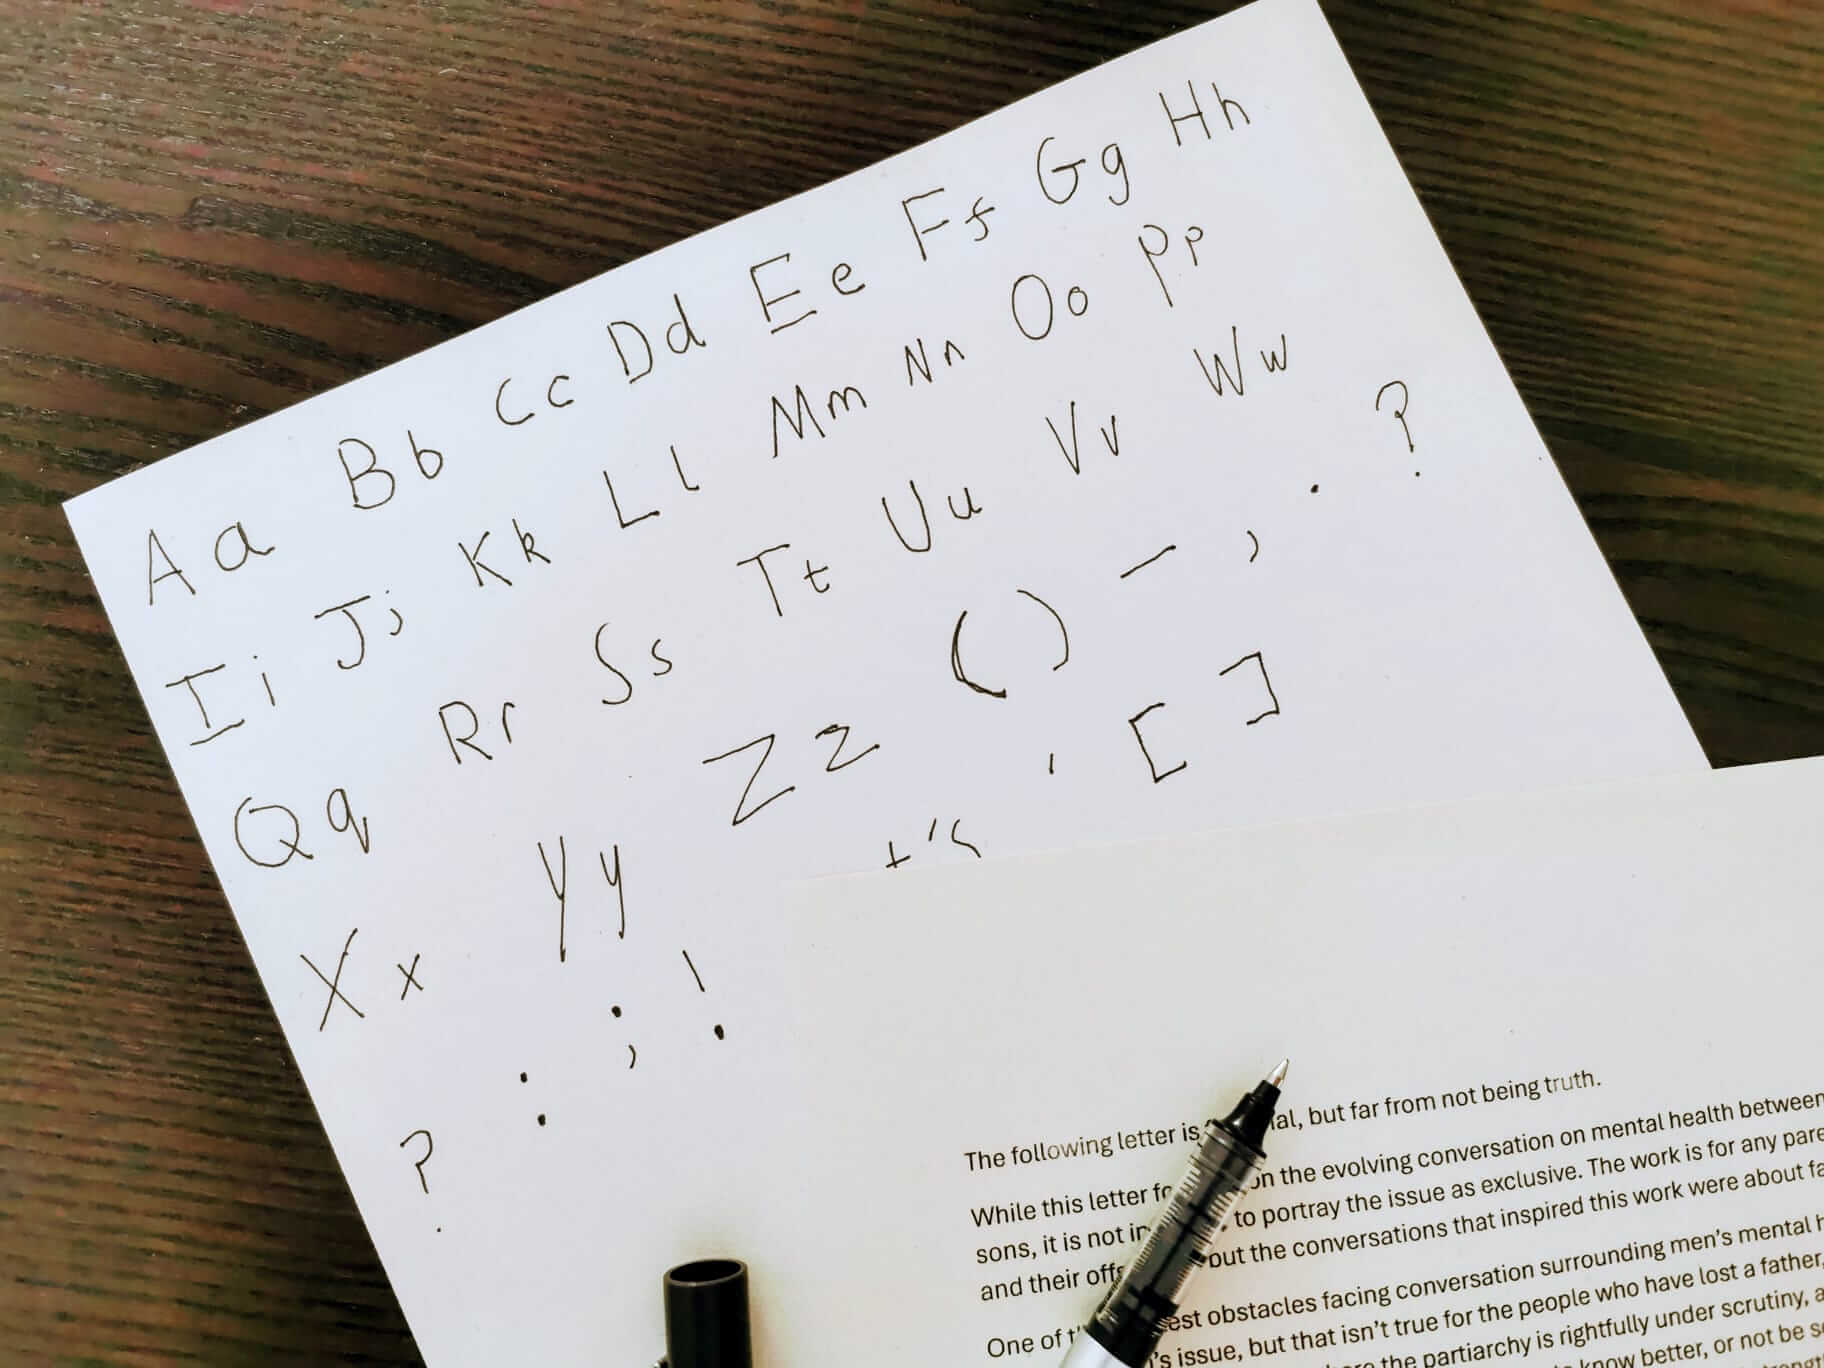 Aa Bb Cc Dd Ee Ff Gg Hh
Ii Jj Kk Ll Mm Nn Oo Pp
Qq Rr Ss Tt Uu Vv Ww
Xx Yy Zz ( ) — , . ?
? : ; ! ' [ ]
The following letter is al, but far from not being truth.
While this letter on the evolving conversation on mental health between
sons, it is not to portray the issue as exclusive. The work is for any
and their but the conversations that inspired this work were about
One of obstacles facing conversation surrounding men's mental
's issue, but that isn't true for the people who have lost a father,
the partiarchy is rightfully under scrutiny,
know better, or not be